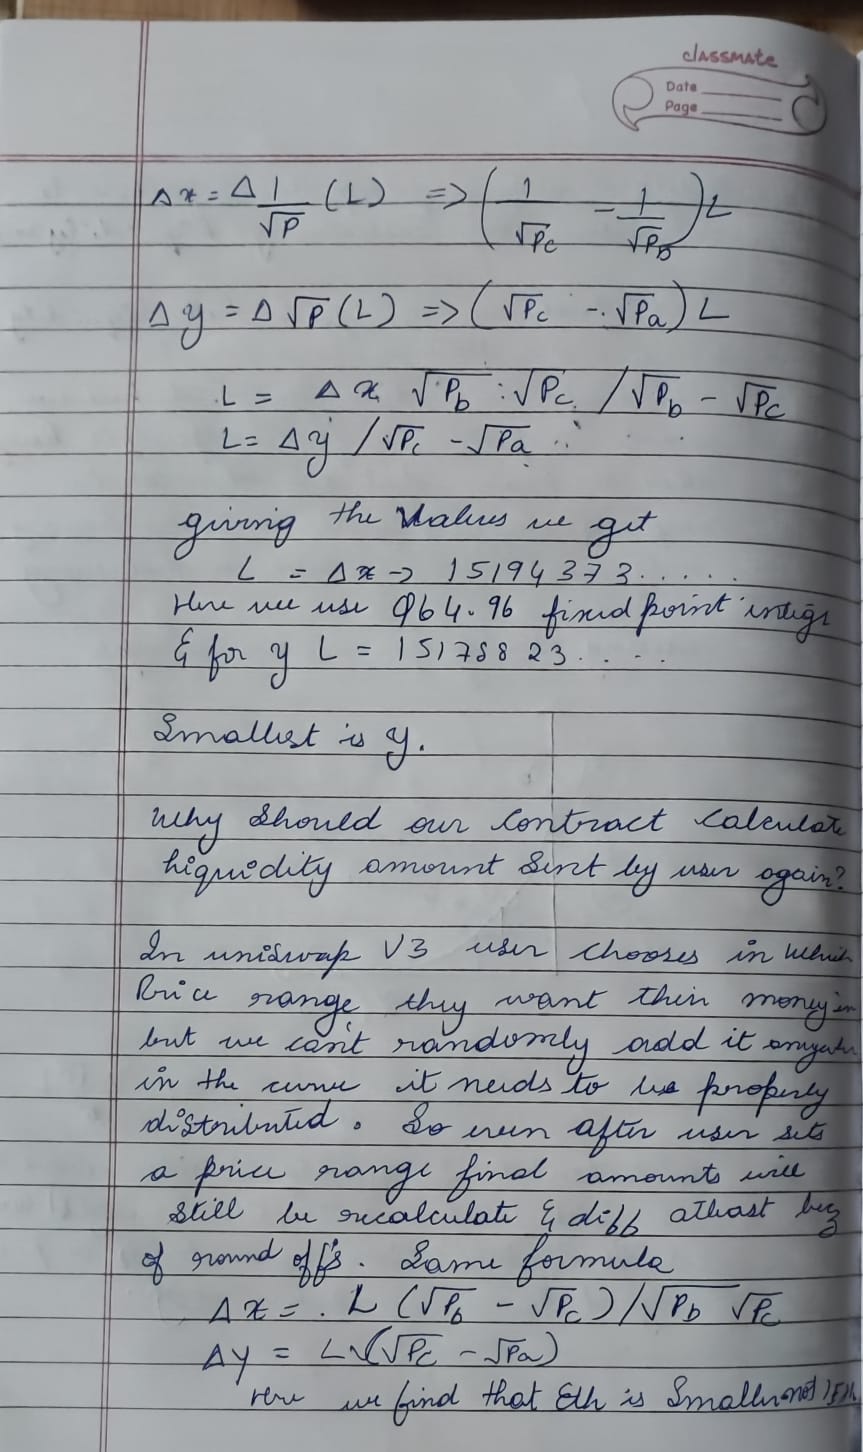 classmate
Date
Page
Δx = Δ 1/√P (L) => (1/√Pc - 1/√Pb) L
Δy = Δ√P (L) => (√Pc - √Pa) L
L = Δx √Pb . √Pc / √Pb - √Pc
L = Δy / √Pc - √Pa
giving the values we get
L = Δx -> 15194373.....
Here we use Q64.96 fixed point
& for y L = 1517882 3. . . .
Smallest is y.
Why should our contract calculate
liquidity amount sent by user again?
In uniswap V3 user chooses in which
Price range they want their money in
but we can't randomly add it
in the curve it needs to be properly
distributed. So even after user sets
a price range final amounts will
still be recalculate & diff atleast bcz
of round off's. Same formula
Δx = L (√Pb - √Pc) / √Pb √Pc
Δy = L (√Pc - √Pa)
Here we find that Eth is Smaller not 1